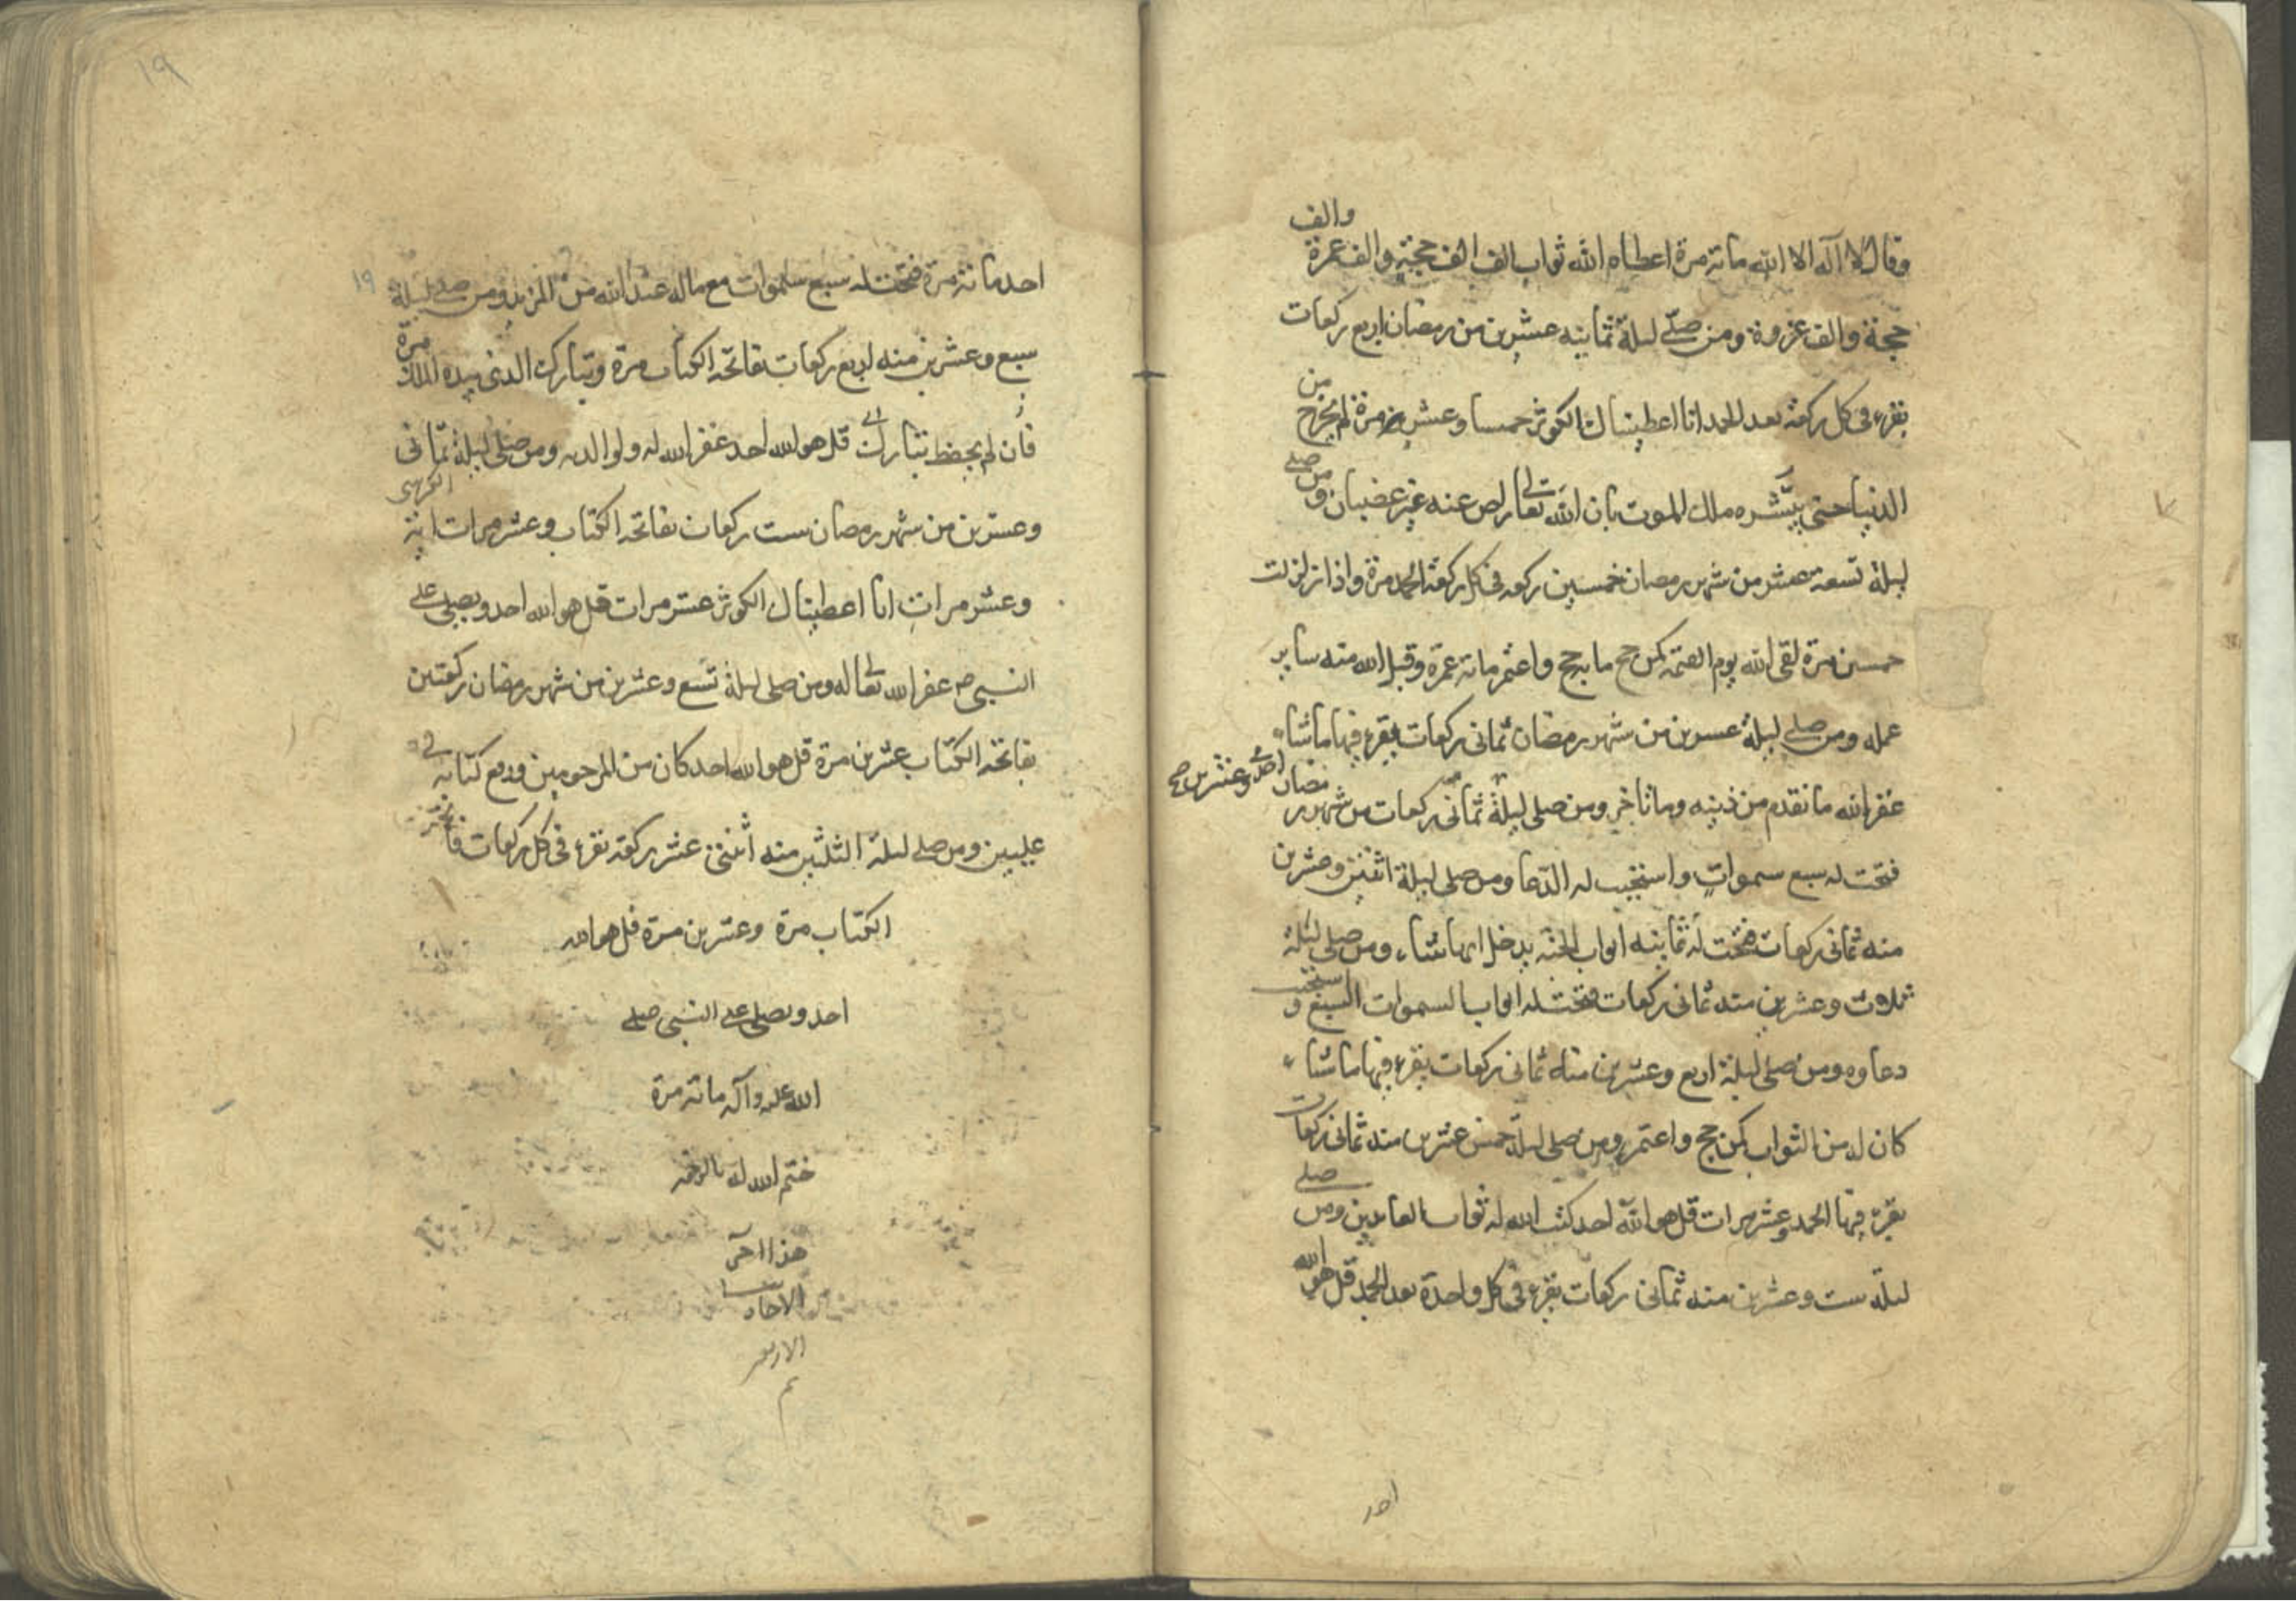 والف
وقال لا اله الا الله مائة مرة اعطاه الله ثواب الف الف حجة والف عمرة
حجة والف غزوة ومن صلى ليلة ثمانيه عشر من رمضان اربع ركعات
من
يقرء في كل ركعة بعد الحمد انا اعطيناك الكوثر خمسا وعشرين مرة لم يخرج
صلى
الدنيا حتى يبشره ملك الموت بان الله تعالى راض عنه غير غضبان ومن
ليلة تسعة عشر من شهر رمضان خمسين ركعه في كل ركعة الحمد مرة واذا زلزلت
خمسين مرة لقي الله يوم القيمة كمن حج مايه حج واعتمر مائة عمرة وقبل الله منه ساير
عمله ومن صلى ليلة عشرين من شهر رمضان ثماني ركعات يقرء فيها ما شاء
مضان احدى وعشرين صح
غفر الله ما تقدم من ذنبه وما تاخر ومن صلى ليلة ثماني ركعات من شهر ر
فتحت له سبع سموات واستجيب له الدعا ومن صلى ليلة اثنين وعشرين
منه ثماني ركعات فتحت له ثمانيه ابواب الجنة يدخل ايها شاء ومن صلى ليلة
استجيب
ثلاث وعشرين منه ثماني ركعات فتحت له ابواب السموات السبع و
دعاوه ومن صلى ليلة اربع وعشرين منه ثماني ركعات يقرء فيها ما شاء
كان له من الثواب كمن حج واعتمر ومن صلى ليلة خمس عشرين منه ثماني ركعات
صلى
يقرء فيها الحمد وعشر مرات قل هو الله احد كتب الله له ثواب العابدين ومن
الله
ليلة ست وعشرين منه ثماني ركعات يقرء في كل واحدة بعد الحمد قل هو
احد
١٩
١٩
احد مائة مرة فتحت له سبع سموات مع ماله عند الله من المزيد ومن صلى ليلة
مرة
سبع وعشرين منه اربع ركعات بفاتحة الكتاب مرة وتبارك الذي بيده الملك
فان لم يحفظ تبارك قل هو الله احد غفر الله له ولوالديه ومن صلى ليلة ثماني
الكرسي
وعشرين من شهر رمضان ست ركعات بفاتحة الكتاب وعشر مرات اية
وعشر مرات انا اعطيناك الكوثر عشر مرات قل هو الله احد ويصلي على
النبي ص غفر الله تعالى له ومن صلى ليلة تسع وعشرين من شهر رمضان ركعتين
بفاتحة الكتاب عشرين مرة قل هو الله احد كان من المرحومين ورفع كتابه في
عليين ومن صلى ليلة الثلثين منه اثنتي عشر ركعة يقرء في كل ركعات فاتحة
الكتاب مرة وعشرين مرة قل هو الله
احد ويصلي على النبي صلى
الله عليه وآله مائة مرة
ختم الله له بالرحمة
هذا اخر
الاحاديث
الاربعين
تم